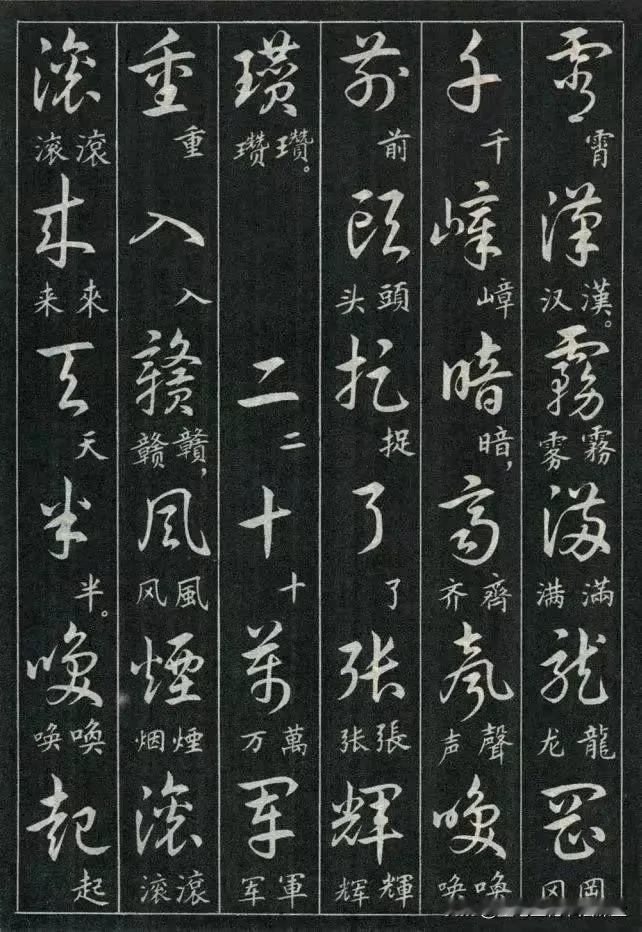 霄 霄 漢 汉漢。 霧 雾霧 滿 满滿 龍 龙龍 岡 冈岡
千 千 嶂 嶂 暗 暗， 齊 齐齊 聲 声聲 喚 唤喚
前 前 頭 头頭 捉 捉 了 了 張 张張 輝 辉輝
瓚 瓒瓚。 二 二 十 十 萬 万萬 軍 军軍
重 重 入 入 贛 赣贛， 風 风風 煙 烟煙 滾 滚滾
滾 滚滾 來 来來 天 天 半 半。 喚 唤喚 起 起